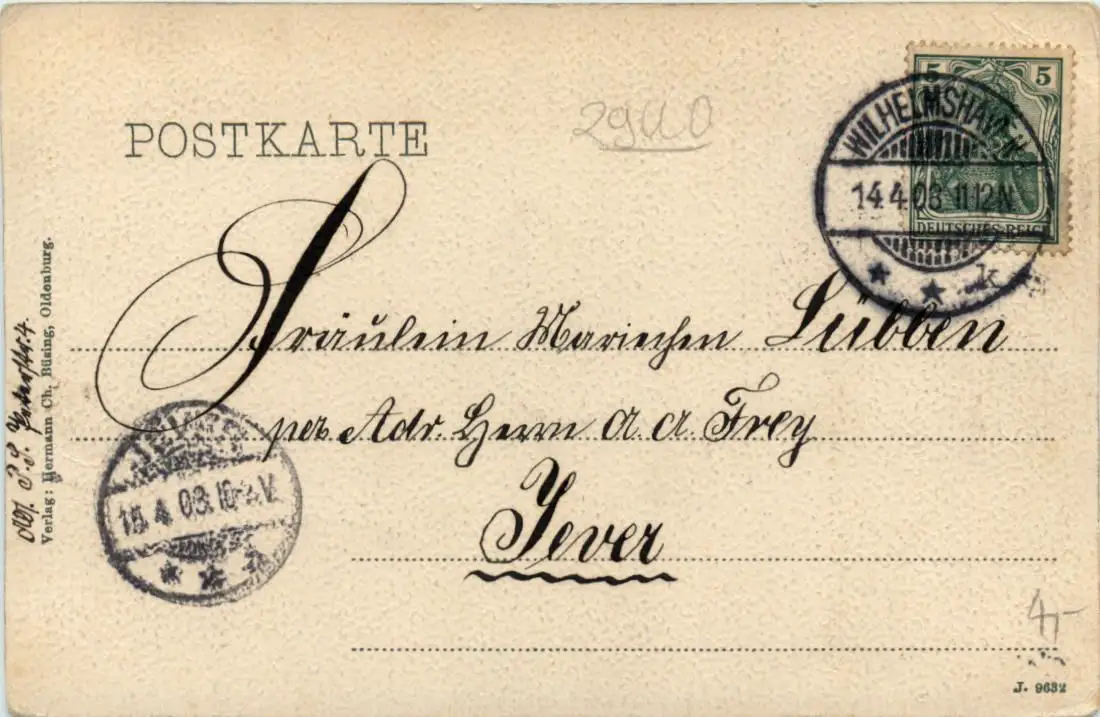 POSTKARTE
2940
5 5
WILHELMSHAVEN
14.4.03.11-12N.
DEUTSCHES REICH
* * k
Fräulein Mariechen Lübben
per Adr. Herrn A. A. Frey
Jever
JEVER
15.4.03.10-V.
* * *
Verlag: Hermann Ch. Büsing, Oldenburg.
4,-
J. 9632